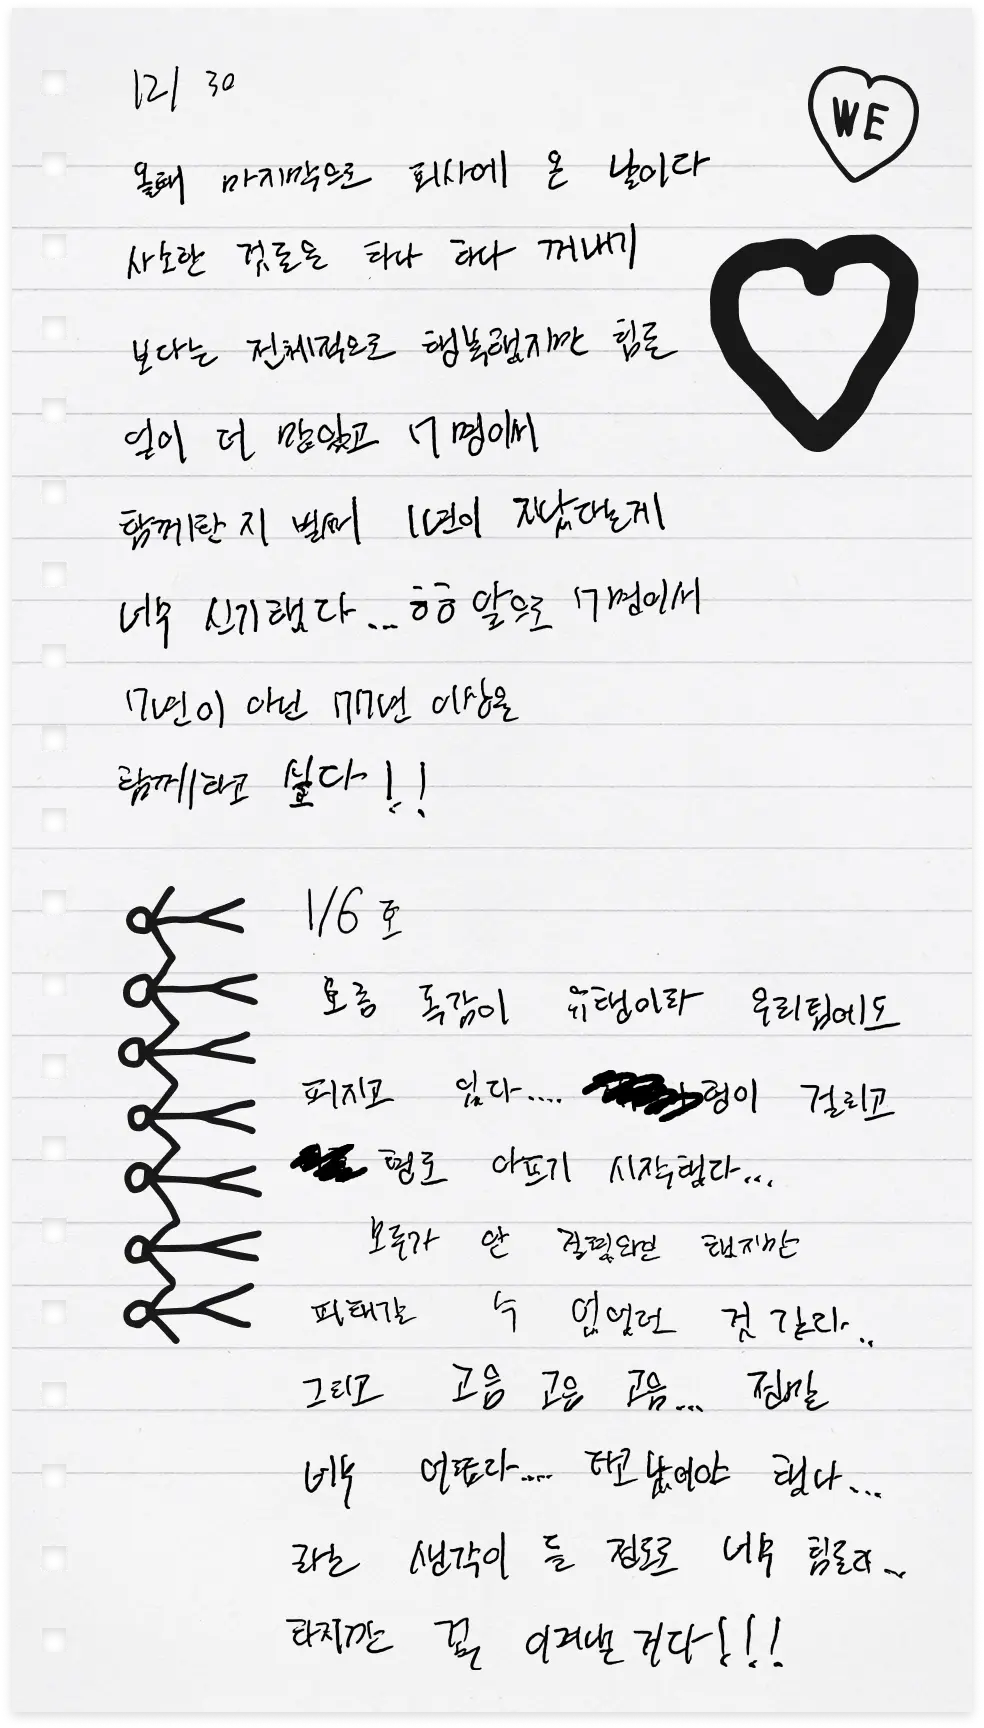 12/30
WE
올해 마지막으로 회사에 온 날이다
사소한 것들을 하나 하나 꺼내기
보다는 전체적으로 행복했지만 힘든
일이 더 많았고 7명이서
함께한 지 벌써 11년이 지났다는게
너무 신기했다...ㅎㅎ 앞으로 7명이서
7년이 아닌 77년 이상을
함께하고 싶다!!
1/6 호
요즘 독감이 유행이라 우리팀에도
퍼지고 있다.... 형이 걸리고
형도 아프기 시작했다...
모두가 안 걸렸으면 했지만
피해갈 수 없었던 것 같다..
그리고 고음 고음 고음... 정말
너무 어렵다.... 하고 낮춰야 했나...
라는 생각이 들 정도로 너무 힘들다..
하지만 꼭 이겨낼거다!!!